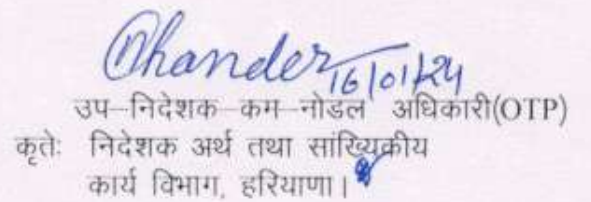 Chander
16/01/24
उप–निदेशक–कम–नोडल अधिकारी(OTP)
कृतेः निदेशक अर्थ तथा सांख्यिकीय
कार्य विभाग, हरियाणा।